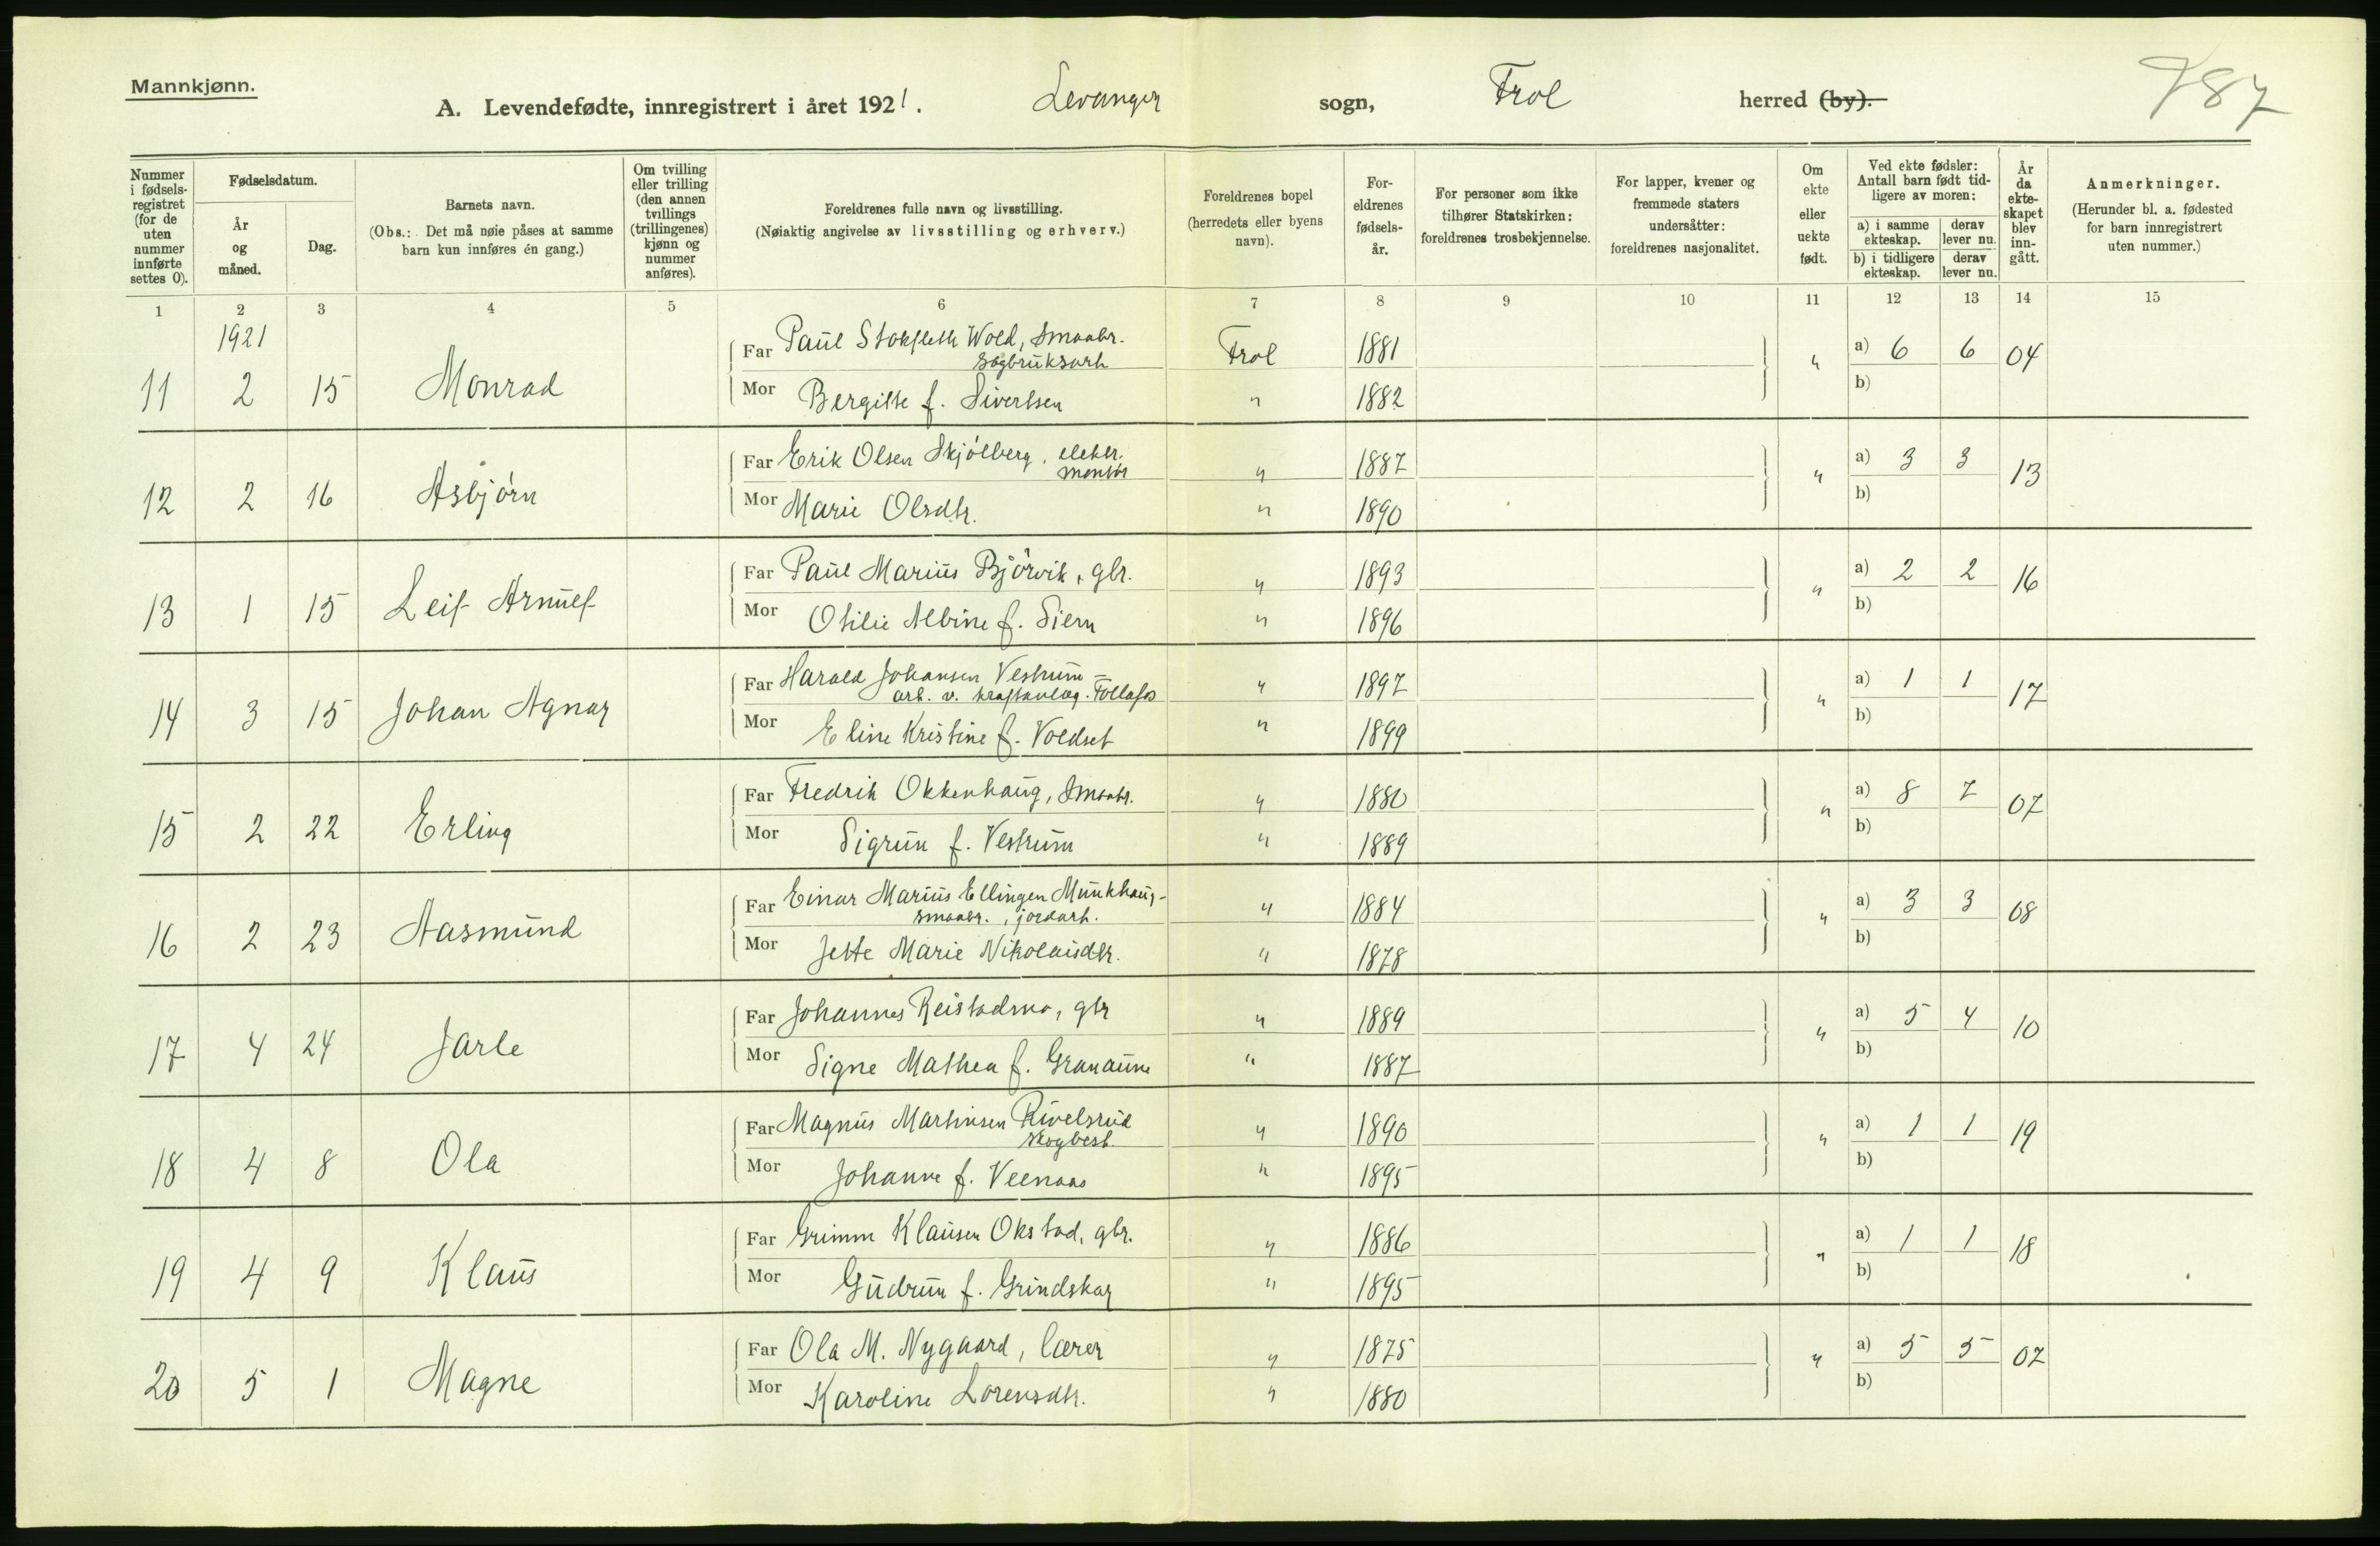 Mannkjønn.
A. Levendefødte, innregistrert i året 1921. Levanger sogn, Frol herred (by).
787
Nummer i fødselsregistret (for de uten nummer innførte settes 0).
Fødselsdatum.
År og måned.
Dag.
Barnets navn.
(Obs.: Det må nøie påses at samme barn kun innføres én gang.)
Om tvilling eller trilling (den annen tvillings (trillingenes) kjønn og nummer anføres).
Foreldrenes fulle navn og livsstilling.
(Nøiaktig angivelse av livsstilling og erhverv.)
Foreldrenes bopel (herredets eller byens navn).
Foreldrenes fødselsår.
For personer som ikke tilhører Statskirken: foreldrenes trosbekjennelse.
For lapper, kvener og fremmede staters undersåtter: foreldrenes nasjonalitet.
Om ekte eller uekte født.
Ved ekte fødsler: Antall barn født tidligere av moren:
a) i samme ekteskap. derav lever nu.
b) i tidligere ekteskap. derav lever nu.
År da ekteskapet blev inngått.
Anmerkninger.
(Herunder bl. a. fødested for barn innregistrert uten nummer.)
1 2 3 4 5 6 7 8 9 10 11 12 13 14 15
1921
Far Paul Stokfleth Wold, smaabr. Frol 1881 " a) 6 6 04
sagbruksarb
11 2 15 Monrad Mor Bergitte f. Sivertsen " 1882 b)
Far Erik Olsen Skjølberg, elektr. " 1887 " a) 3 3 13
montør
12 2 16 Asbjørn Mor Marie Olsdtr. " 1890 b)
Far Paul Marius Bjørvik, gbr. " 1893 " a) 2 2 16
13 1 15 Leif Arnulf Mor Otilie Albine f. Siem " 1896 b)
Far Harald Johansen Vestrum - " 1897 " a) 1 1 17
arb. v. kraftanlæg. Follafos
14 3 15 Johan Agnar Mor Eline Kristine f. Voldset " 1899 b)
Far Fredrik Okkenhaug, smaabr. " 1880 " a) 8 7 07
15 2 22 Erling Mor Sigrun f. Vestrum " 1889 b)
Far Einar Marius Ellingen Munkhaug - " 1884 " a) 3 3 08
smaabr., jordarb.
16 2 23 Aasmund Mor Jette Marie Nikolaisdtr. " 1878 b)
Far Johannes Reistadmo, gbr " 1889 " a) 5 4 10
17 4 24 Jarle Mor Signe Mathea f. Granaune " 1887 b)
Far Magnus Martinsen " 1890 " a) 1 1 19
skogbest.
18 4 8 Ola Mor Johanne f. Veenaas " 1895 b)
Far Grimm Klausen Okstad, gbr. " 1886 " a) 1 1 18
19 4 9 Klaus Mor Gudrun f. Grindskar " 1895 b)
Far Ola M. Nygaard, lærer " 1875 " a) 5 5 07
20 5 1 Magne Mor Karoline Lorensdtr. " 1880 b)